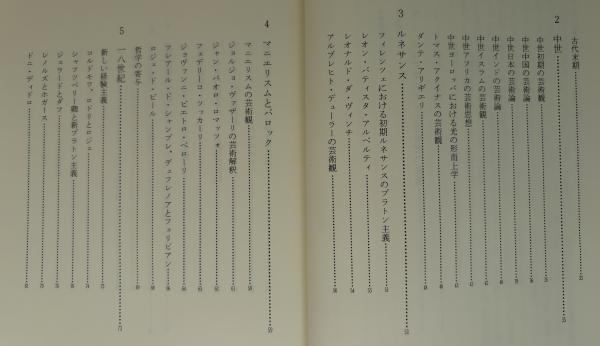 古代末期
2 中世
中世初期の芸術観
中世中国の芸術論
中世日本の芸術論
中世インドの芸術論
中世イスラムの芸術観
中世アフリカの芸術思想
中世ヨーロッパにおける光の形而上学
トマス・アクィナスの芸術観
ダンテ・アリギエリ
3 ルネサンス
フィレンツェにおける初期ルネサンスのプラトン主義
レオン・バティスタ・アルベルティ
レオナルド・ダ・ヴィンチ
アルブレヒト・デューラーの芸術観
4 マニエリスムとバロック
マニエリスムの芸術観
ジョルジョ・ヴァザーリの芸術解釈
ジャン・パオロ・ロマッツォ
フェデリーコ・ツッカーリ
ジョヴァンニ・ピエトロ・ベローリ
フレアール・ド・シャンブレ、デュフレノアとフェリビアン
ロジェ・ド・ピール
哲学の寄与
5 一八世紀
新しい経験主義
コルドモワ、ロドリとロジェ
シャフツベリー卿と新プラトン主義
ジェラードとダフ
レノルズとホガース
ドニ・ディドロ